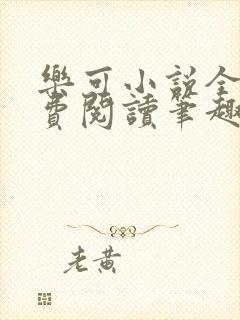 樂可小說全
費閱讀筆趣
老黃